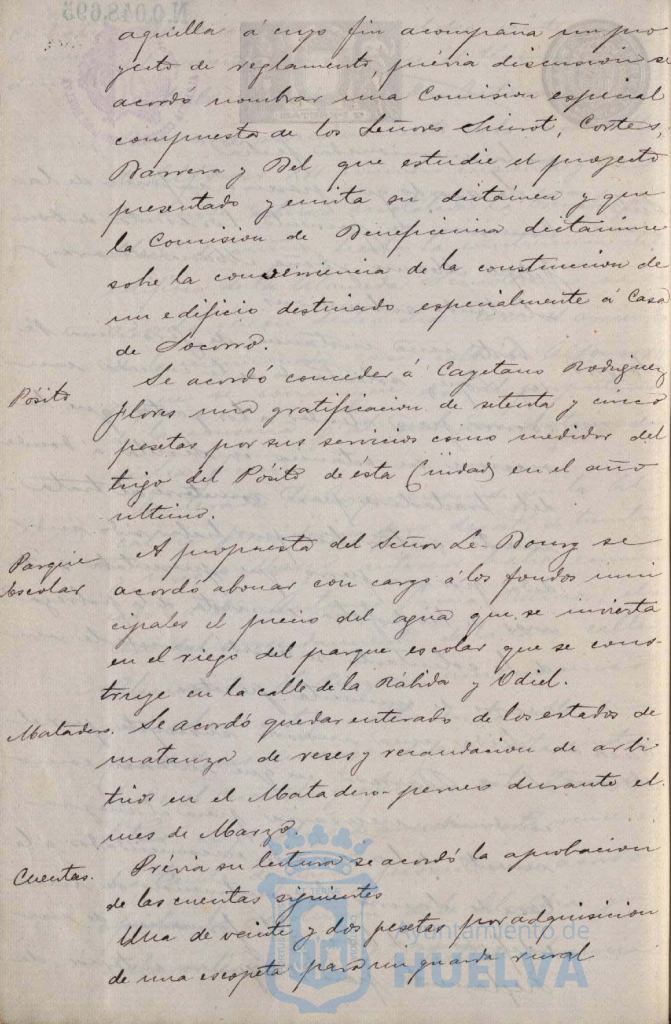 N.0.048.695
aquella á cuyo fin acompaña un pro
yecto de reglamento, prévia discusion se
acordó nombrar una Comision especial
compuesta de los Señores Siurot, Cortes,
Barrera y Bel que estudie el proyecto
presentado y emita su dictámen y que
la Comision de Beneficencia dictamine
sobre la conveniencia de la construccion de
un edificio destinado especialmente á Casa
de Socorro.
Pósito
Se acordó conceder á Cayetano Rodriguez
Flores una gratificacion de setenta y cinco
pesetas por sus servicios como medidor del
trigo del Pósito de ésta Ciudad en el año
ultimo.
Parque
Escolar
A propuesta del Señor Le-Bourg se
acordó abonar con cargo á los fondos muni
cipales el precio del agua que se invierta
en el riego del parque escolar que se cons-
truye en la calle de la Rábida y Odiel.
Matadero.
Se acordó quedar enterado de los estados de
matanza de reses y recaudacion de arbi
trios en el Matadero durante el
mes de Marzo.
Cuentas.
Prévia su lectura se acordó la aprobacion
de las cuentas siguientes
Una de veinte y dos pesetas por adquisicion
de una escopeta para un guarda rural
Ayuntamiento de
HUELVA